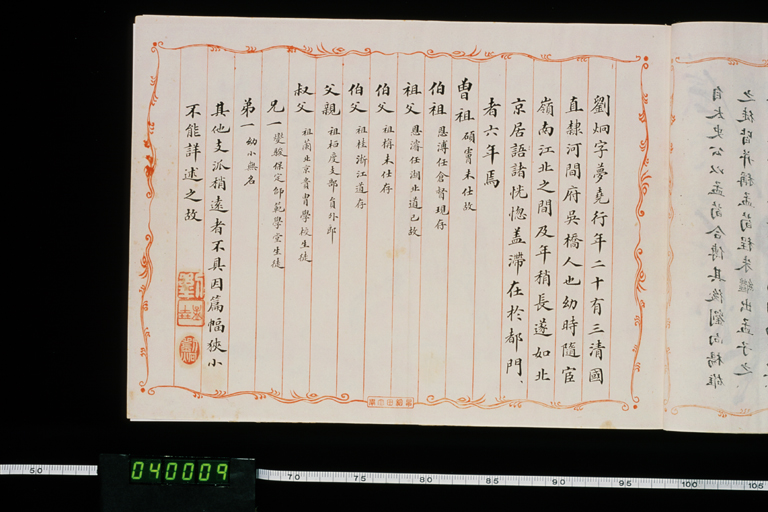 劉炯字夢堯行年二十有三清國
直隸河間府吳橋人也幼時隨宦
嶺南江北之間及年稍長遂如北
京居語諸恍惚蓋滯在於都門、
者六年焉
曾祖 碩 未仕故
伯祖 恩溥任倉督現存
祖父 恩濬任湖北道已故
伯父 祖 未仕存
伯父 祖桂浙江道存
父親 祖 度支部員外郎
叔父 祖蘭北京貴胄學校生徒
兄一 燮駿保定師範學堂生徒
弟一 幼小無名
其他支派稍遠者不具因篇幅狹小
不能詳述之故
劉
040009
50
70
75
80
85
90
95
100
105